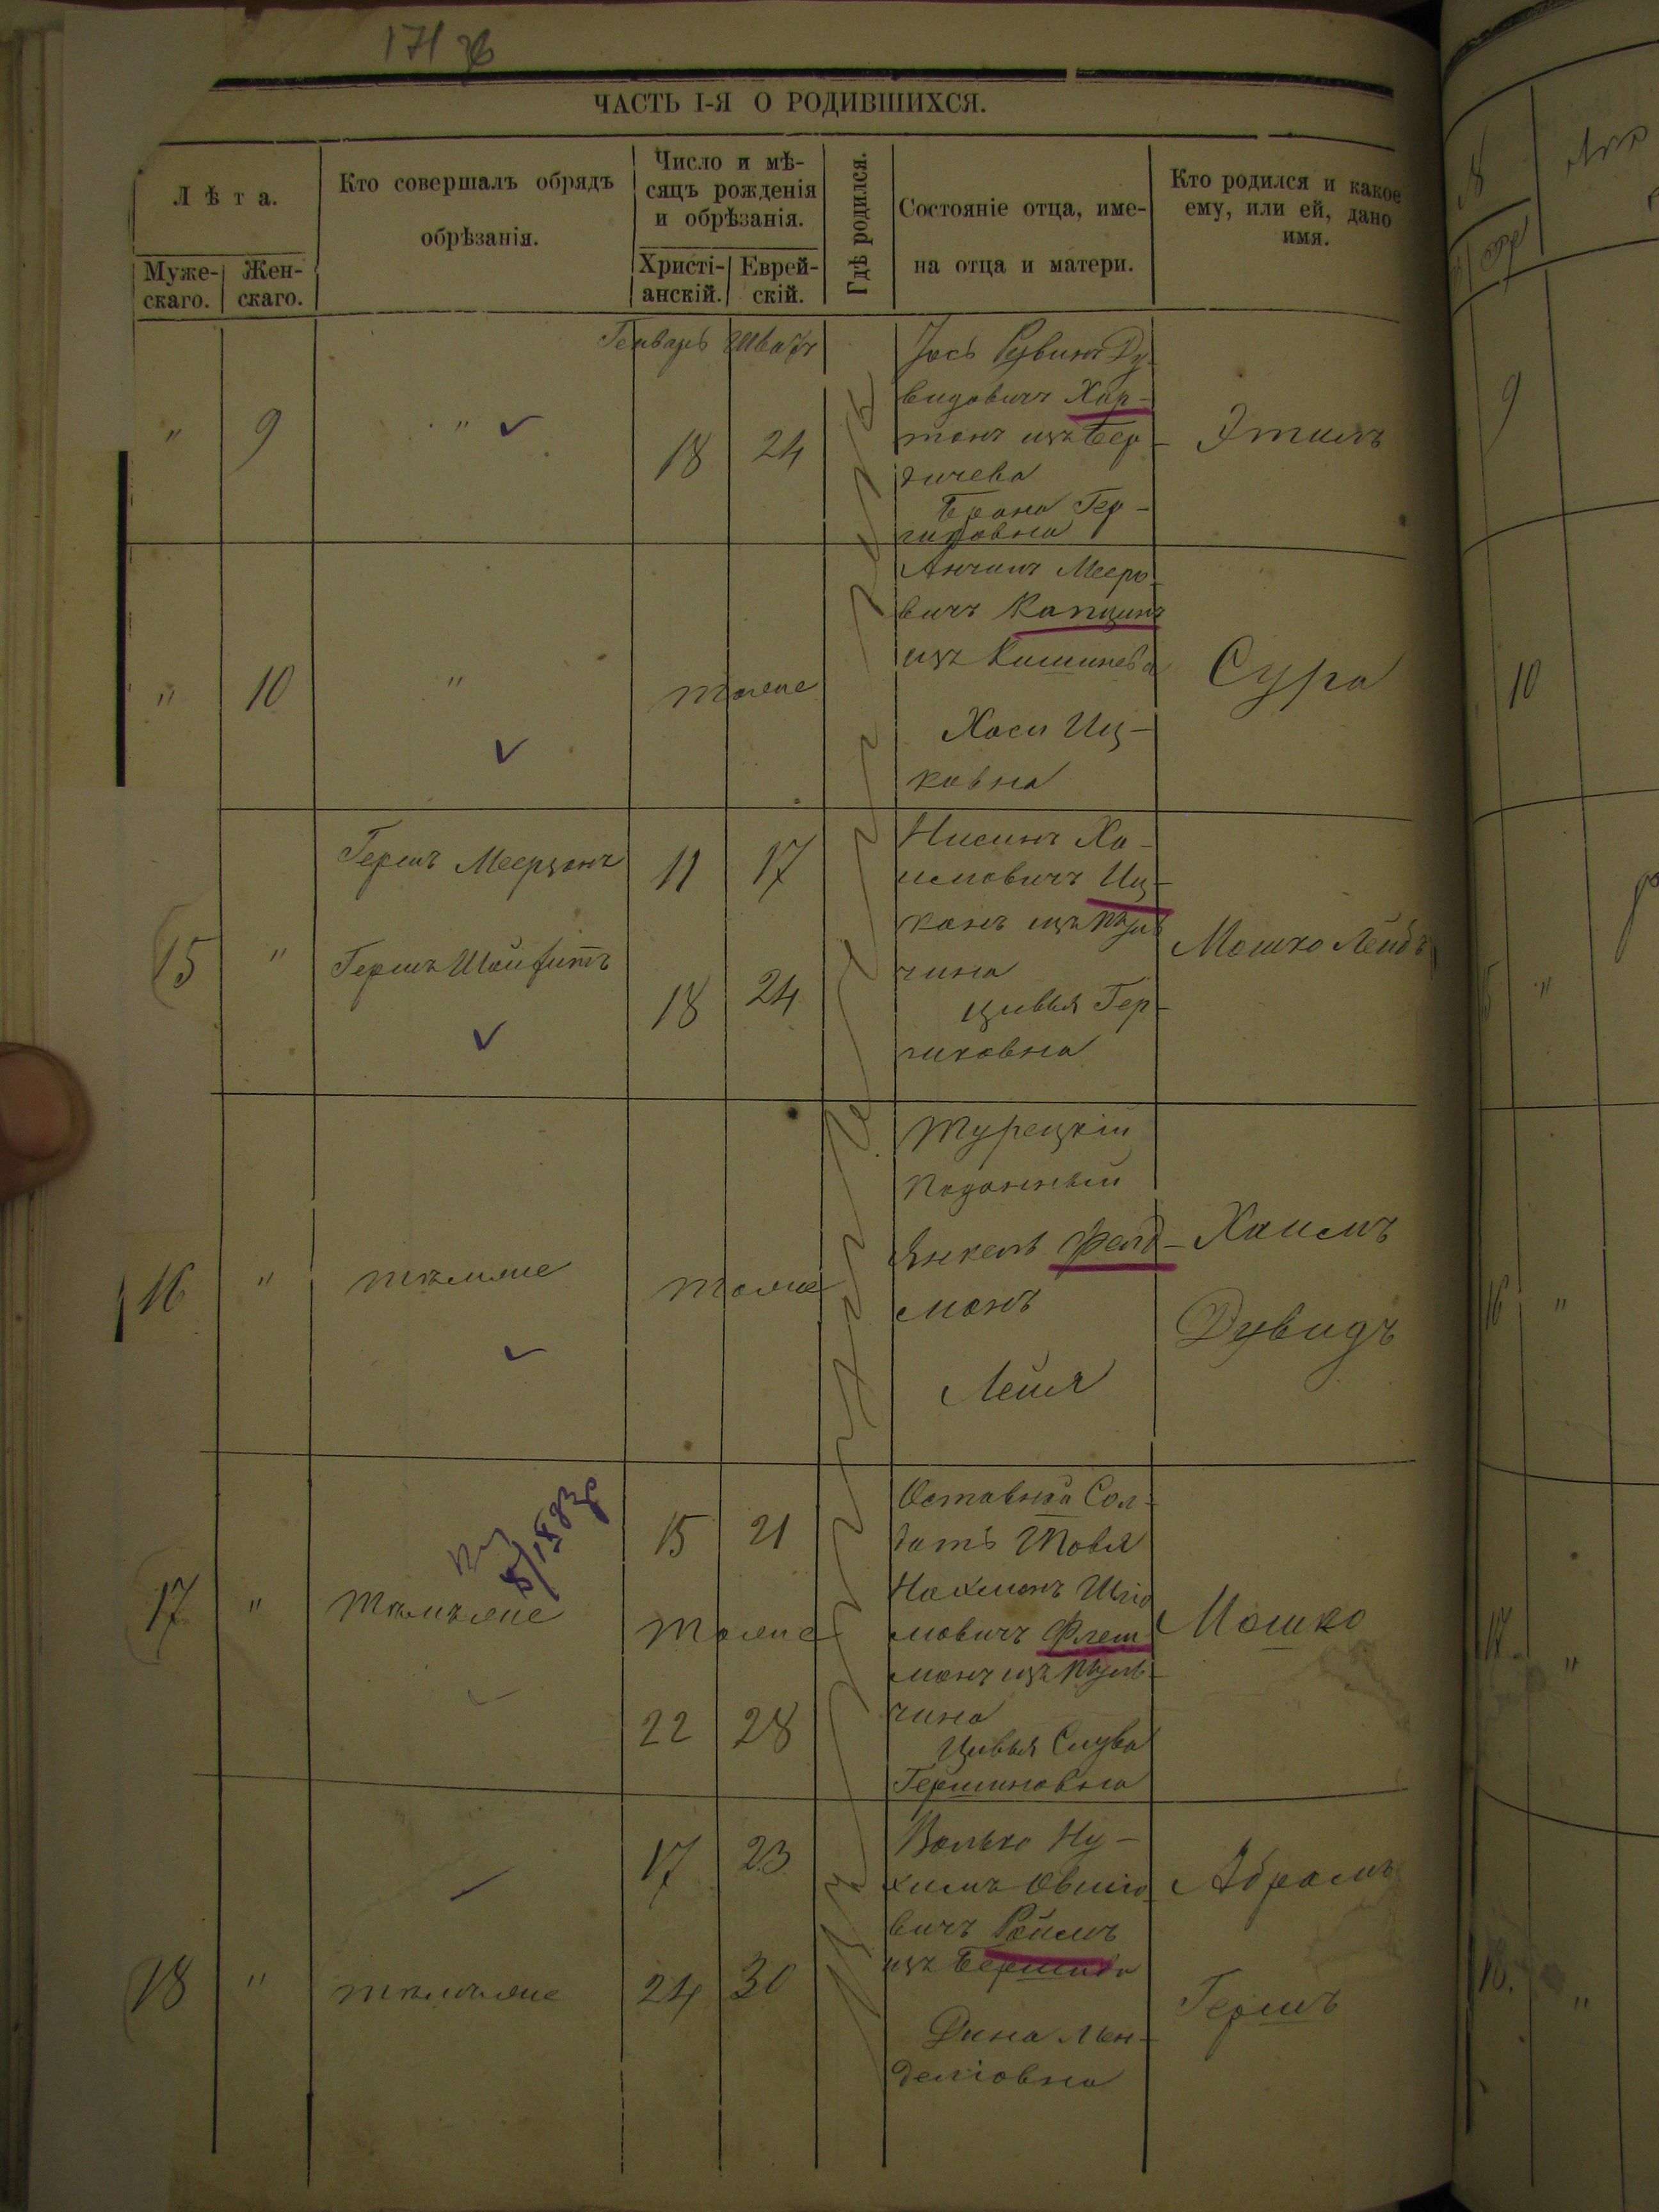 17
ЧАСТЬ I-Я О РОДИВШИХСЯ.
Лѣта.
Муже-
скаго.
Жен-
скаго.
Кто совершалъ обрядъ
обрѣзанія.
Число и мѣ-
сяцъ рожденія
и обрѣзанія.
Христі-
анскій.
Еврей-
скій.
Гдѣ родился.
Состояніе отца, име-
на отца и матери.
Кто родился и какое
ему, или ей, дано
имя.
Генварь Шватъ
" 9 "
18 24
Іось Рувинъ Ду-
видовичъ Хар-
тонъ изъ Бер-
дичева
Брана Гер-
шковна
Этиль
" 10 "
тоже
Анчилъ Мееро-
вичъ Капцинъ
изъ Кишинева
Хася Иц-
ковна
Сура
15 "
Гершъ Меерзонъ
11 17
Гершъ Шойфитъ
18 24
Нисинъ Ха-
имовичъ Иц-
канъ изъ Туль-
чина
Цивья Гер-
шковна
Мошко Лейбъ
16 "
тѣмже
тоже
Турецкій
Подданный
Янкель Фельд-
манъ
Лейя
Хаимъ
Дувидъ
17 "
Тѣмъже
15 21
Тоже
22 28
Отставной Сол-
датъ Товя
Нахманъ Шлио
мовичъ Флеш-
манъ изъ Туль-
чина
Цивья Слува
Гершиновна
Мошко
18 "
тѣмъже
17 23
24 30
Волько Ну-
химъ Овшіо-
вичъ Роймъ
изъ Бершади
Дина Мен-
деліовна
Абрамъ
Гершъ
9
10
15 "
16 "
17 "
18. "